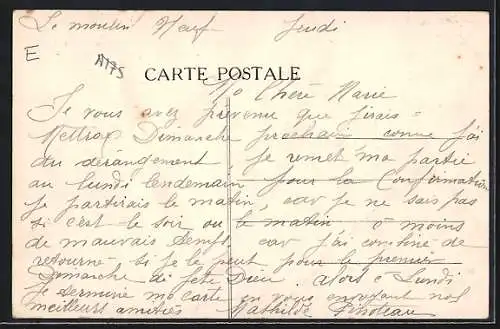 Le moulin Neuf Jeudi
E
A175
CARTE POSTALE
Chère Marie
Je vous avez prévenu que j'irais
Mettray Dimanche prochain comme j'ai
du dérangement je remet ma partie
au lundi lendemain pour la Confirmation
je partirais le matin, car je ne sais pas
si c'est le soir ou le matin à moins
de mauvais temps, car j'ai combiné de
retourné si je le peut pour le premier
Dimanche de fête Dieu. alors à Lundi
Je termine ma carte en vous envoyant nos
meilleurs amitiés Mathilde